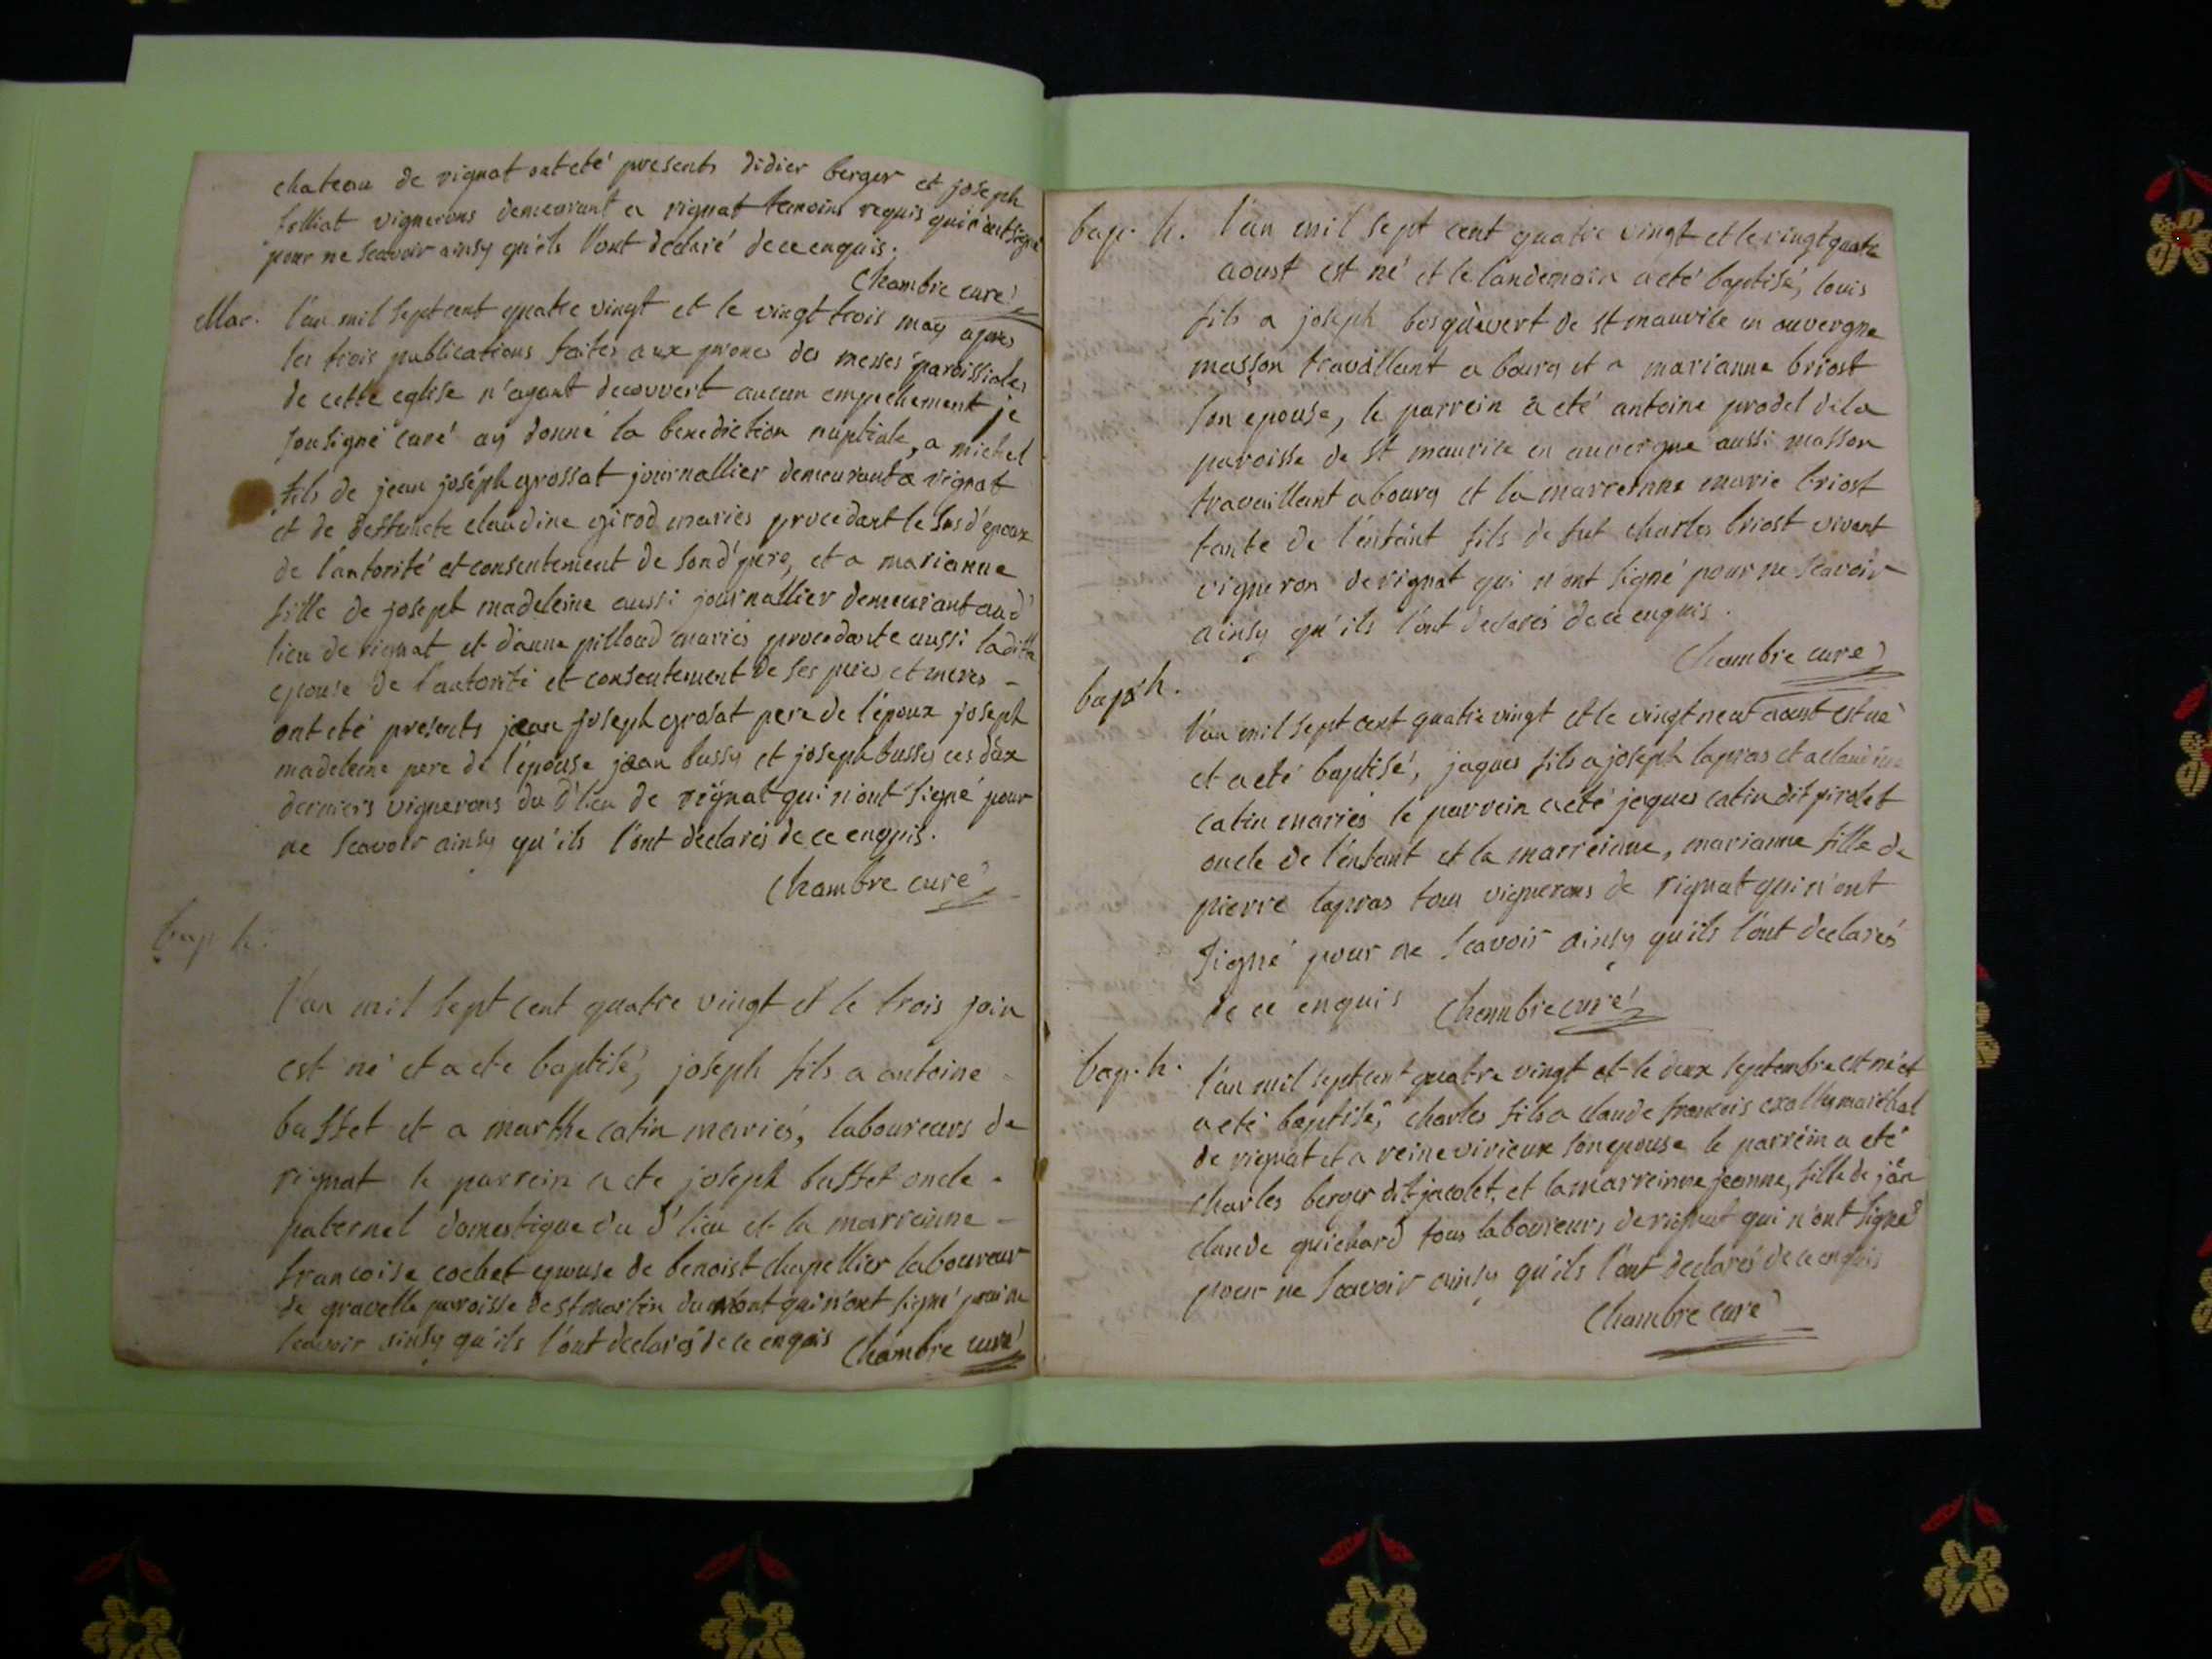 chateau de rignat ont eté presents didier berger et joseph
folliat vignerons demeurant a rignat temoins requis qui n'ont signé
pour ne scavoir ainsy qu'ils l'ont declaré de ce enquis.
Chambre curé
Mar. l'an mil sept cent quatre vingt et le vingt trois may apres
les trois publications faites aux prones des messes paroissiales
de cette eglise n'ayant decouvert aucun empechement je
sousigné curé ay donné la benediction nuptiale, a michel
fils de jean joseph grossat journallier demeurant a rignat
et de deffuncte claudine girod mariés procedant le susd' epoux
de l'autorité et consentement de sond' pere, et a marianne
fille de joseph madeleine aussi journallier demeurant aud'
lieu de rignat et d'anne pilloud mariés procedante aussi laditte
epouse de l'autorité et consentement de ses peres et meres -
ont eté presents jean joseph grosat pere de l'époux joseph
madeleine pere de l'epouse jean bussy et joseph bussy ces deux
derniers vignerons du d' lieu de rignat qui n'ont signé pour
ne scavoir ainsy qu'ils l'ont declarés de ce enquis.
Chambre curé
bap. h.
l'an mil sept cent quatre vingt et le trois join
est né et a eté baptisé, joseph fils a antoine
buffet et a marthe catin mariés, laboureurs de
rignat le parrein a eté joseph buffet oncle
paternel domestique du d' lieu et la marreinne -
francoise cochet epouse de benoist chapellier laboureur
de gravelle paroisse de st martin du mont qui n'ont signé pour ne
scavoir ainsy qu'ils l'ont declarés de ce enquis Chambre curé
bap. h. l'an mil sept cent quatre vingt et le vingt quatre
aoust est né et le landemain a eté baptisé, louis
fils a joseph de st maurice en auvergne
masson travaillant a bourg et a marianne briost
son epouse, le parrein a eté antoine prodel de la
paroisse de st maurice en auvergne aussi masson
travaillant a bourg et la marreinne marie briost
tante de l'enfant fils de fut charles briost vivant
vigneron de rignat qui n'ont signé pour ne scavoir
ainsy qu'ils l'ont declarés de ce enquis.
Chambre curé
bap. h.
l'an mil sept cent quatre vingt et le vingt neuf aoust est né
et a eté baptisé, jaques fils a joseph lapras et a claudine
catin mariés le parrein a eté jaques catin dit pirolet
oncle de l'enfant et la marreinne, marianne fille de
pierre lapras tous vignerons de rignat qui n'ont
signé pour ne scavoir ainsy qu'ils l'ont declarés
de ce enquis Chambre curé
bap. h. l'an mil sept cent quatre vingt et le deux septembre est né et
a eté baptisé, charles fils a claude francois maréchal
de rignat et a reine virieux son epouse le parrein a eté
charles berger dit jacolet, et la marreinne jeanne, fille de jean
claude guichard tous laboureurs de rignat qui n'ont signé
pour ne scavoir ainsy qu'ils l'ont declarés de ce enquis
Chambre curé